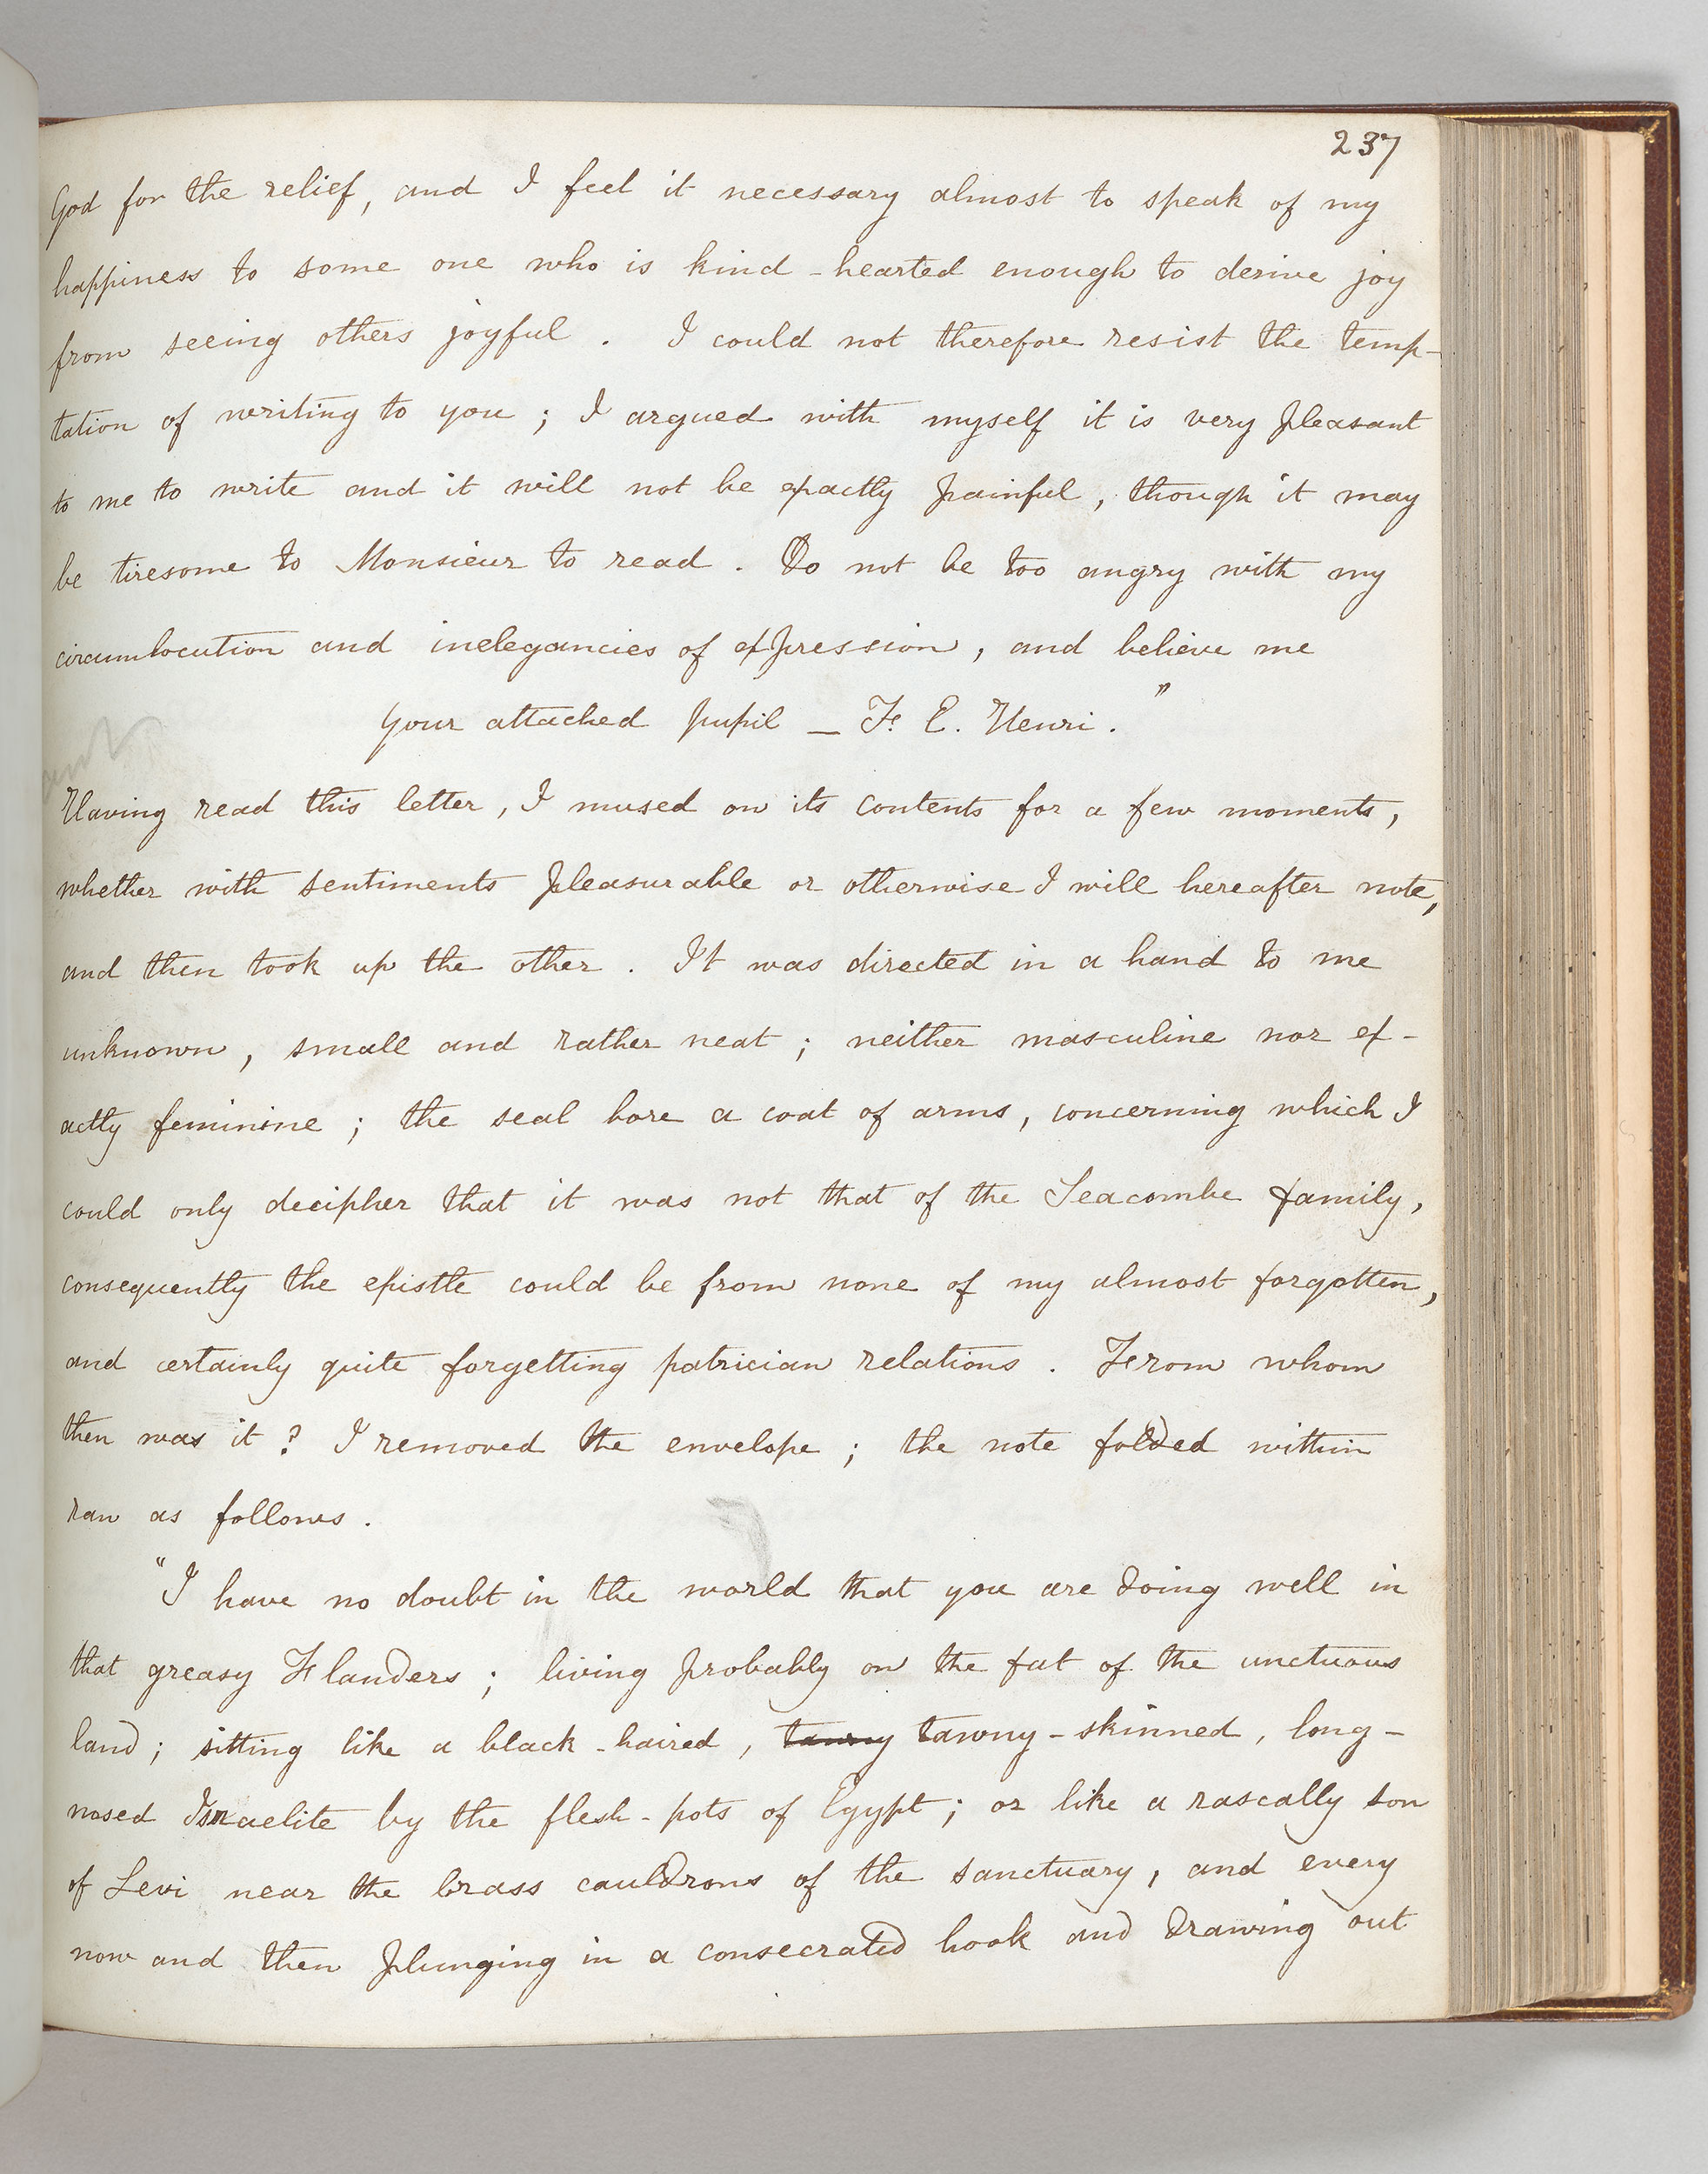 237
God for the relief, and I feel it necessary almost to speak of my
happiness to some one who is kind-hearted enough to derive joy
from seeing others joyful. I could not therefore resist the temp-
tation of writing to you; I argued with myself it is very pleasant
to me to write and it will not be exactly painful, though it may
be tiresome to Monsieur to read. Do not be too angry with my
circumlocution and inelegancies of expression, and believe me
your attached pupil — F. E. Henri."
Having read this letter, I mused on its contents for a few moments,
whether with sentiments pleasurable or otherwise I will hereafter note,
and then took up the other. It was directed in a hand to me
unknown, small and rather neat; neither masculine nor ex-
actly feminine; the seal bore a coat of arms, concerning which I
could only decipher that it was not that of the Seacombe family,
consequently the epistle could be from none of my almost forgotten,
and certainly quite forgetting patrician relations. From whom
then was it? I removed the envelope; the note folded within
ran as follows.
"I have no doubt in the world that you are doing well in
that greasy Flanders; living probably on the fat of the unctuous
land; sitting like a black-haired, tawny tawny-skinned, long-
nosed Israelite by the flesh-pots of Egypt; or like a rascally son
of Levi near the brass cauldrons of the sanctuary, and every
now and then plunging in a consecrated hook and drawing out